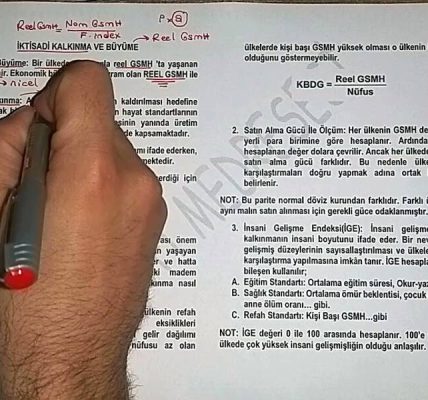 Reel GSMH = Nom GSMH
F. index
P x Q
→ Reel GSMH
İKTİSADİ KALKINMA VE BÜYÜME
Büyüme: Bir ülkede reel GSMH 'ta yaşanan
Ekonomik REEL GSMH ile
nicel
kaldırılması hedefine
hayat standartlarının
yanında üretim
de kapsamaktadır.
ifade ederken,
mektedir.
erdiği için
ası önem
yaşayan
ve hatta
ki madem
kınma nasıl
ülkenin refah
eksiklikleri
gelir dağılımı
nüfusu az olan
ülkelerde kişi başı GSMH yüksek olması o ülkenin
olduğunu göstermeyebilir.
KBDG = Reel GSMH
Nüfus
2. Satın Alma Gücü İle Ölçüm: Her ülkenin GSMH de
yerli para birimine göre hesaplanır. Ardında
hesaplanan değer dolara çevrilir. Ancak her ülkede
satın alma gücü farklıdır. Bu nedenle ülke
karşılaştırmaları doğru yapmak adına ortak
belirlenir.
NOT: Bu parite normal döviz kurundan farklıdır. Farklı ü
aynı malın satın alınması için gerekli güce odaklanmıştır.
3. İnsani Gelişme Endeksi(İGE): İnsani gelişme
kalkınmanın insani boyutunu ifade eder. Bir nev
gelişmiş düzeylerinin sayısallaştırılması ve ülkele
karşılaştırma yapılmasına imkân tanır. İGE hesapla
bileşen kullanılır;
A. Eğitim Standartı: Ortalama eğitim süresi, Okur-yaz
B. Sağlık Standartı: Ortalama ömür beklentisi, çocuk
anne ölüm oranı... gibi.
C. Refah Standartı: Kişi Başı GSMH...gibi
NOT: İGE değeri 0 ile 100 arasında hesaplanır. 100'e
ülkede çok yüksek insani gelişmişliğin olduğu anlaşılır.